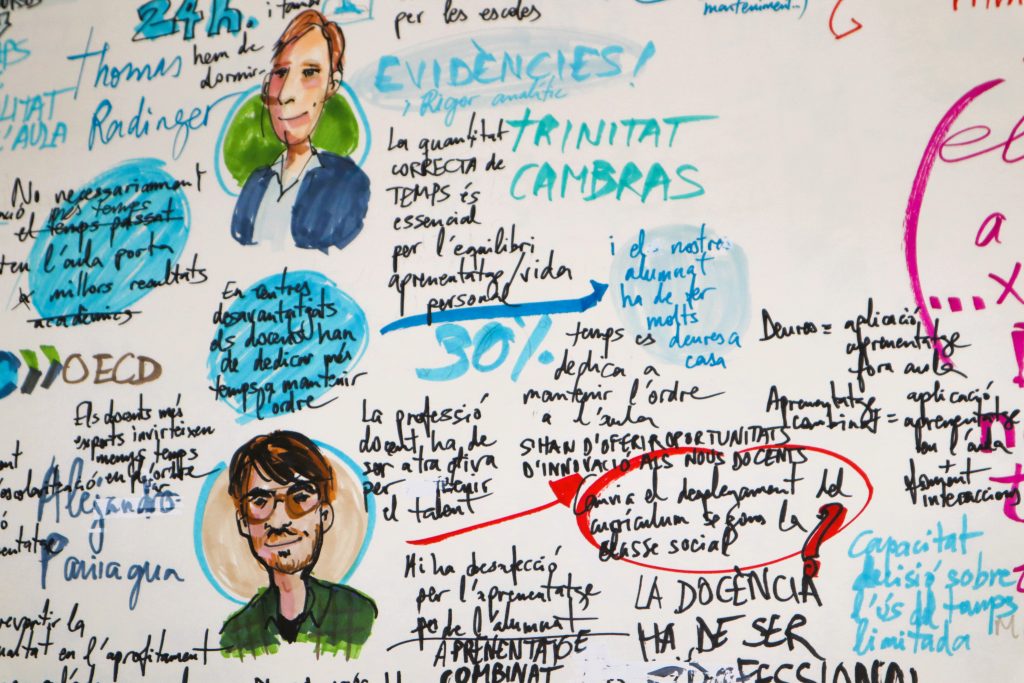 24h.
i també
hem de
dormir.
per les escoles
manteniment...)
Thomas
Radinger
EVIDÈNCIES!
Rigor analític
L'AULA
La quantitat
CORRECTA de
TEMPS és
essencial
per l'equilibri
aprenentatge/vida
personal
TRINITAT
CAMBRAS
No necessariament
més temps
el temps passat
l'aula porta
millors resultats
acadèmics
OECD
En centres
desavantatjats
els docents han
de dedicar més
temps a mantenir
l'ordre
i el nostre
alumnat
ha de fer
molts
deures a
casa
30%
temps es
dedica a
mantenir l'ordre
a l'aula
Deures = aplicació
aprenentatge
fora aula
Aprenentatge
combinat =
aplicació
aprenentatge
en l'aula
foment
interaccions
el
a
...x
Els docents més
experts inverteixen
menys temps
en l'ordre
Alejandro
Paniagua
La professió
docent ha de
ser atractiva
per tenir
el talent
S'HAN D'OFERIR OPORTUNITATS
D'INNOVACIÓ ALS NOUS DOCENTS
Canvia el desplegament del
currículum segons la
classe social
?
Hi ha desafecció
per l'aprenentatge
de l'alumnat
APRENENTATGE
COMBINAT
LA DOCÈNCIA
HA DE SER
PROFESSIONAL
Capacitat
decisió sobre
l'ús del temps
limitada
repartir la
en l'aprofitament